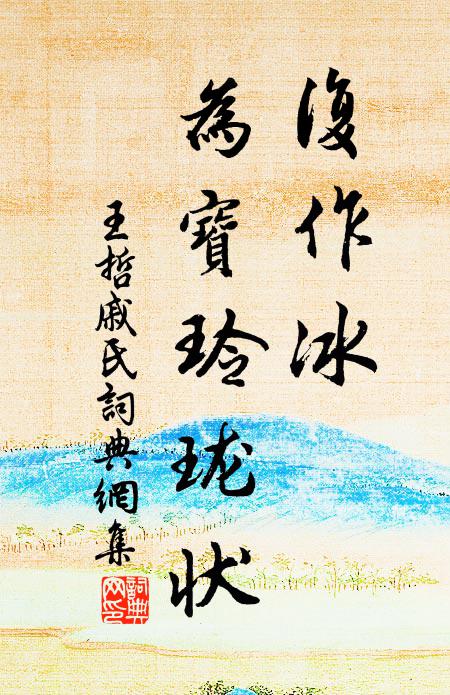 復作冰
為寶玲瓏状
王哲戚氏詞典網集
詞典
网